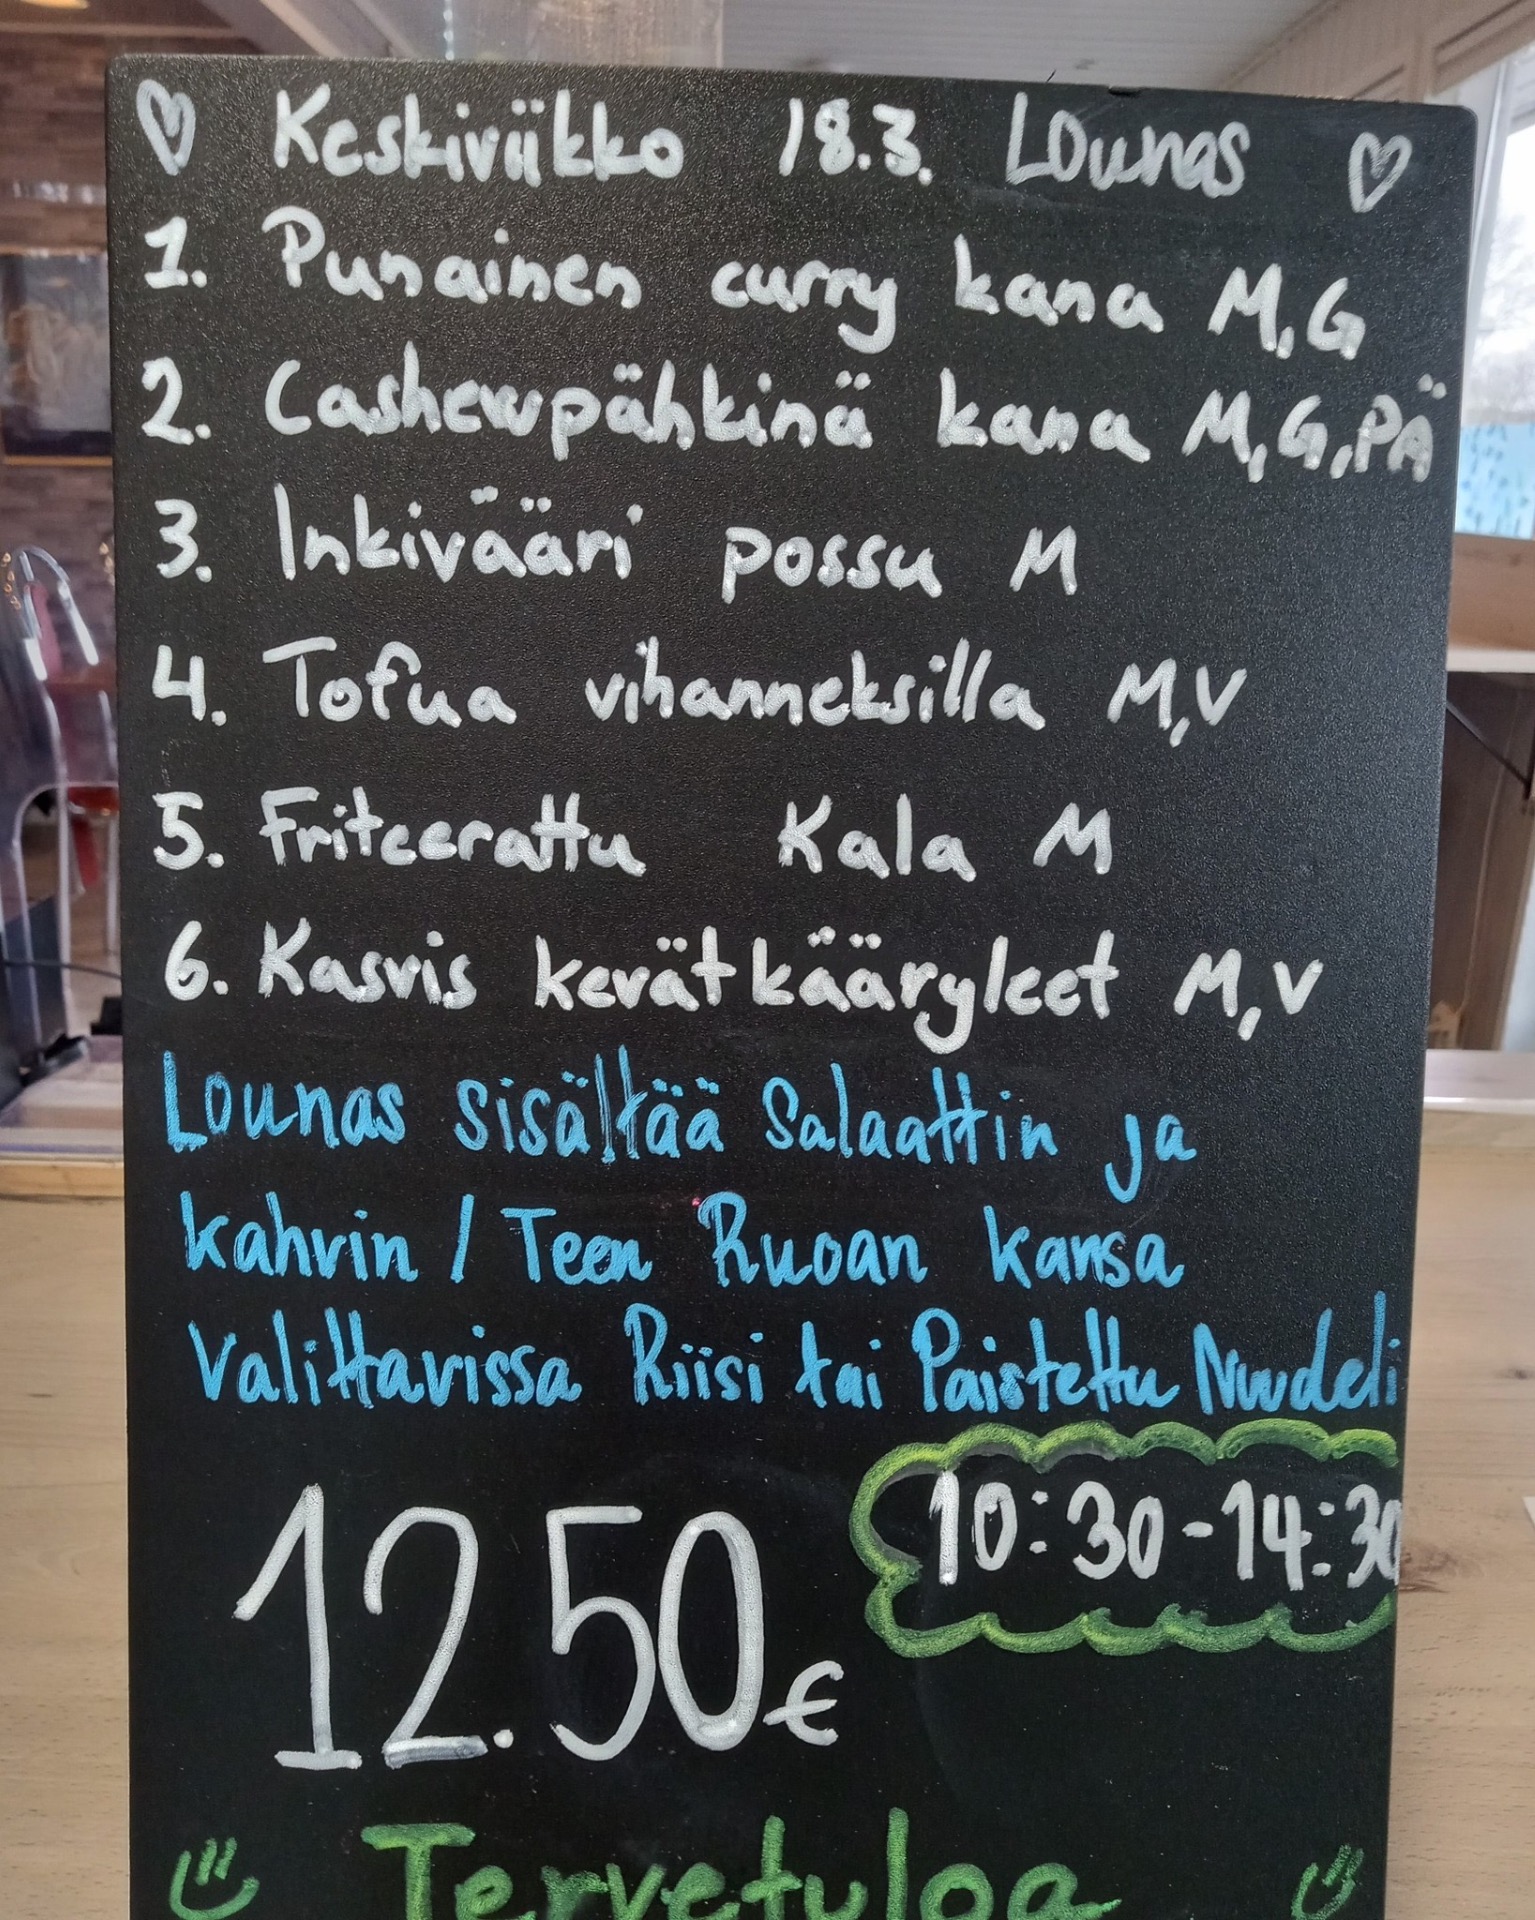 ♡ Keskiviikko 18.3. Lounas ♡
1. Punainen curry kana M,G
2. Cashewpähkinä kana M,G,PÄ
3. Inkivääri possu M
4. Tofua vihanneksilla M,V
5. Friteerattu Kala M
6. Kasvis kevätkääryleet M,V
Lounas sisältää Salaattin ja
kahvin / Teen Ruoan kansa
Valittavissa Riisi tai Paistettu Nuudeli
10:30-14:30
12.50€
Tervetuloa